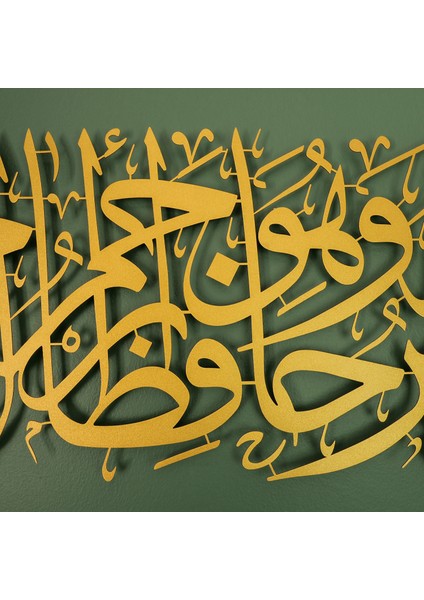 حَافِظًا وَهُوَ أَرْحَمُ